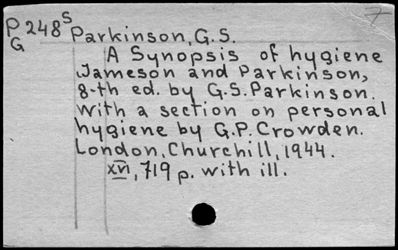 P 248 S Parkinson, G.S.
G
A Synopsis of hygiene
Jameson and Parkinson,
8-th ed. by G.S. Parkinson.
With a section on personal
hygiene by G.P. Crowden.
London, Churchill, 1944.
XVI, 719 p. with ill.
7